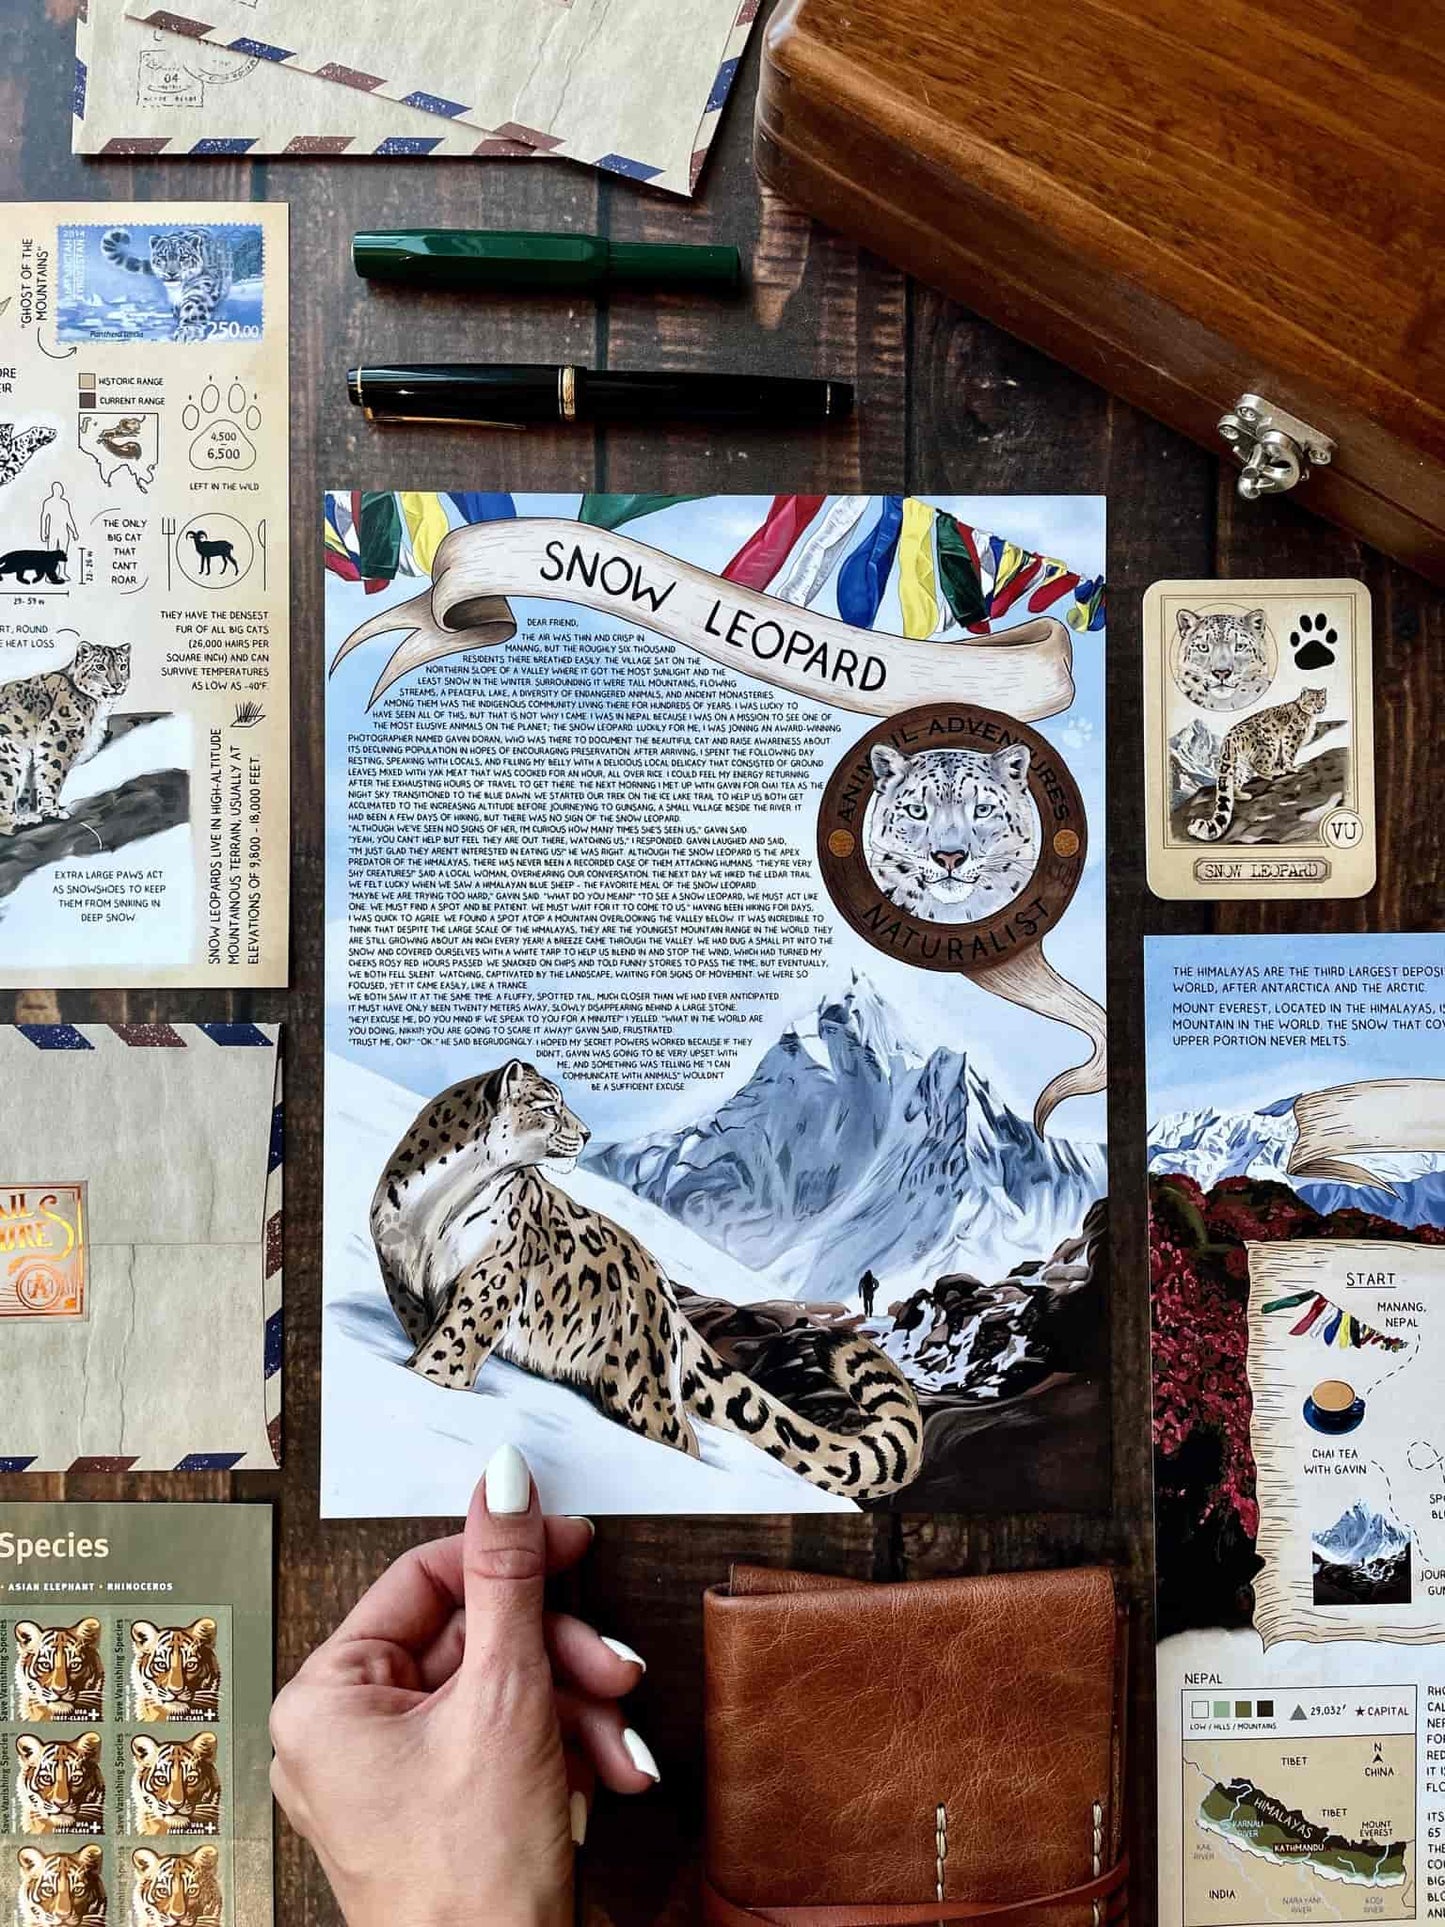 04
"GHOST OF THE
MOUNTAINS"
2014
Panthera uncia
250.00
HISTORIC RANGE
CURRENT RANGE
4,500
–
6,500
LEFT IN THE WILD
THE ONLY
BIG CAT
THAT
CAN'T
ROAR.
THEY HAVE THE DENSEST
FUR OF ALL BIG CATS
(26,000 HAIRS PER
SQUARE INCH) AND CAN
SURVIVE TEMPERATURES
AS LOW AS -40°F.
RT, ROUND
E HEAT LOSS
EXTRA LARGE PAWS ACT
AS SNOWSHOES TO KEEP
THEM FROM SINKING IN
DEEP SNOW.
SNOW LEOPARDS LIVE IN HIGH-ALTITUDE
MOUNTAINOUS TERRAIN, USUALLY AT
ELEVATIONS OF 9,800 - 18,000 FEET.
SNOW LEOPARD
DEAR FRIEND,
THE AIR WAS THIN AND CRISP IN
MANANG, BUT THE ROUGHLY SIX THOUSAND
RESIDENTS THERE BREATHED EASILY. THE VILLAGE SAT ON THE
NORTHERN SLOPE OF A VALLEY WHERE IT GOT THE MOST SUNLIGHT AND THE
LEAST SNOW IN THE WINTER. SURROUNDING IT WERE TALL MOUNTAINS, FLOWING
STREAMS, A PEACEFUL LAKE, A DIVERSITY OF ENDANGERED ANIMALS, AND ANCIENT MONASTERIES.
AMONG THEM WAS THE INDIGENOUS COMMUNITY LIVING THERE FOR HUNDREDS OF YEARS. I WAS LUCKY TO
HAVE SEEN ALL OF THIS, BUT THAT IS NOT WHY I CAME. I WAS IN NEPAL BECAUSE I WAS ON A MISSION TO SEE ONE OF
THE MOST ELUSIVE ANIMALS ON THE PLANET; THE SNOW LEOPARD. LUCKILY FOR ME, I WAS JOINING AN AWARD-WINNING
PHOTOGRAPHER NAMED GAVIN DORAN, WHO WAS THERE TO DOCUMENT THE BEAUTIFUL CAT AND RAISE AWARENESS ABOUT
ITS DECLINING POPULATION IN HOPES OF ENCOURAGING PRESERVATION. AFTER ARRIVING, I SPENT THE FOLLOWING DAY
RESTING, SPEAKING WITH LOCALS, AND FILLING MY BELLY WITH A DELICIOUS LOCAL DELICACY THAT CONSISTED OF GROUND
LEAVES MIXED WITH YAK MEAT THAT WAS COOKED FOR AN HOUR, ALL OVER RICE. I COULD FEEL MY ENERGY RETURNING
AFTER THE EXHAUSTING HOURS OF TRAVEL TO GET THERE. THE NEXT MORNING I MET UP WITH GAVIN FOR CHAI TEA AS THE
NIGHT SKY TRANSITIONED TO THE BLUE DAWN. WE STARTED OUR TREK ON THE ICE LAKE TRAIL TO HELP US BOTH GET
ACCLIMATED TO THE INCREASING ALTITUDE BEFORE JOURNEYING TO GUNSANG, A SMALL VILLAGE BESIDE THE RIVER. IT
HAD BEEN A FEW DAYS OF HIKING, BUT THERE WAS NO SIGN OF THE SNOW LEOPARD.
"ALTHOUGH WE'VE SEEN NO SIGNS OF HER, I'M CURIOUS HOW MANY TIMES SHE'S SEEN US," GAVIN SAID.
"YEAH, YOU CAN'T HELP BUT FEEL THEY ARE OUT THERE, WATCHING US," I RESPONDED. GAVIN LAUGHED AND SAID,
"I'M JUST GLAD THEY AREN'T INTERESTED IN EATING US!" HE WAS RIGHT. ALTHOUGH THE SNOW LEOPARD IS THE APEX
PREDATOR OF THE HIMALAYAS, THERE HAS NEVER BEEN A RECORDED CASE OF THEM ATTACKING HUMANS. "THEY'RE VERY
SHY CREATURES!" SAID A LOCAL WOMAN, OVERHEARING OUR CONVERSATION. THE NEXT DAY WE HIKED THE LEDAR TRAIL.
WE FELT LUCKY WHEN WE SAW A HIMALAYAN BLUE SHEEP - THE FAVORITE MEAL OF THE SNOW LEOPARD.
"MAYBE WE ARE TRYING TOO HARD," GAVIN SAID. "WHAT DO YOU MEAN?" "TO SEE A SNOW LEOPARD, WE MUST ACT LIKE
ONE. WE MUST FIND A SPOT AND BE PATIENT. WE MUST WAIT FOR IT TO COME TO US." HAVING BEEN HIKING FOR DAYS,
I WAS QUICK TO AGREE. WE FOUND A SPOT ATOP A MOUNTAIN OVERLOOKING THE VALLEY BELOW. IT WAS INCREDIBLE TO
THINK THAT DESPITE THE LARGE SCALE OF THE HIMALAYAS, THEY ARE THE YOUNGEST MOUNTAIN RANGE IN THE WORLD. THEY
ARE STILL GROWING ABOUT AN INCH EVERY YEAR! A BREEZE CAME THROUGH THE VALLEY. WE HAD DUG A SMALL PIT INTO THE
SNOW AND COVERED OURSELVES WITH A WHITE TARP TO HELP US BLEND IN AND STOP THE WIND, WHICH HAD TURNED MY
CHEEKS ROSY RED. HOURS PASSED. WE SNACKED ON CHIPS AND TOLD FUNNY STORIES TO PASS THE TIME, BUT EVENTUALLY,
WE BOTH FELL SILENT. WATCHING, CAPTIVATED BY THE LANDSCAPE, WAITING FOR SIGNS OF MOVEMENT. WE WERE SO
FOCUSED, YET IT CAME EASILY, LIKE A TRANCE.
WE BOTH SAW IT AT THE SAME TIME. A FLUFFY, SPOTTED TAIL, MUCH CLOSER THAN WE HAD EVER ANTICIPATED.
IT MUST HAVE ONLY BEEN TWENTY METERS AWAY, SLOWLY DISAPPEARING BEHIND A LARGE STONE.
"HEY! EXCUSE ME, DO YOU MIND IF WE SPEAK TO YOU FOR A MINUTE?" I YELLED. "WHAT IN THE WORLD ARE
YOU DOING, NIKKI?! YOU ARE GOING TO SCARE IT AWAY!" GAVIN SAID, FRUSTRATED.
"TRUST ME, OK?" "OK." HE SAID BEGRUDGINGLY. I HOPED MY SECRET POWERS WORKED BECAUSE IF THEY
DIDN'T, GAVIN WAS GOING TO BE VERY UPSET WITH
ME, AND SOMETHING WAS TELLING ME "I CAN
COMMUNICATE WITH ANIMALS" WOULDN'T
BE A SUFFICIENT EXCUSE.
ANIMAIL ADVENTURES
NATURALIST
VU
SNOW LEOPARD
THE HIMALAYAS ARE THE THIRD LARGEST DEPOSI
WORLD, AFTER ANTARCTICA AND THE ARCTIC.
MOUNT EVEREST, LOCATED IN THE HIMALAYAS, I
MOUNTAIN IN THE WORLD. THE SNOW THAT CO
UPPER PORTION NEVER MELTS.
START
MANANG,
NEPAL
CHAI TEA
WITH GAVIN
SP
BL
JOUR
GU
NEPAL
LOW / HILLS / MOUNTAINS
29,032'
CAPITAL
TIBET
N
CHINA
HIMALAYAS
TIBET
KARNALI
RIVER
MOUNT
EVEREST
KATHMANDU
KALI
RIVER
INDIA
NARAYANI
RIVER
KOSI
RIVER
Species
• ASIAN ELEPHANT • RHINOCEROS
Save Vanishing Species
USA
FIRST-CLASS
Save Vanishing Species
USA
FIRST-CLASS
Save Vanishing Species
USA
FIRST-CLASS
Save Vanishing Species
USA
FIRST-CLASS